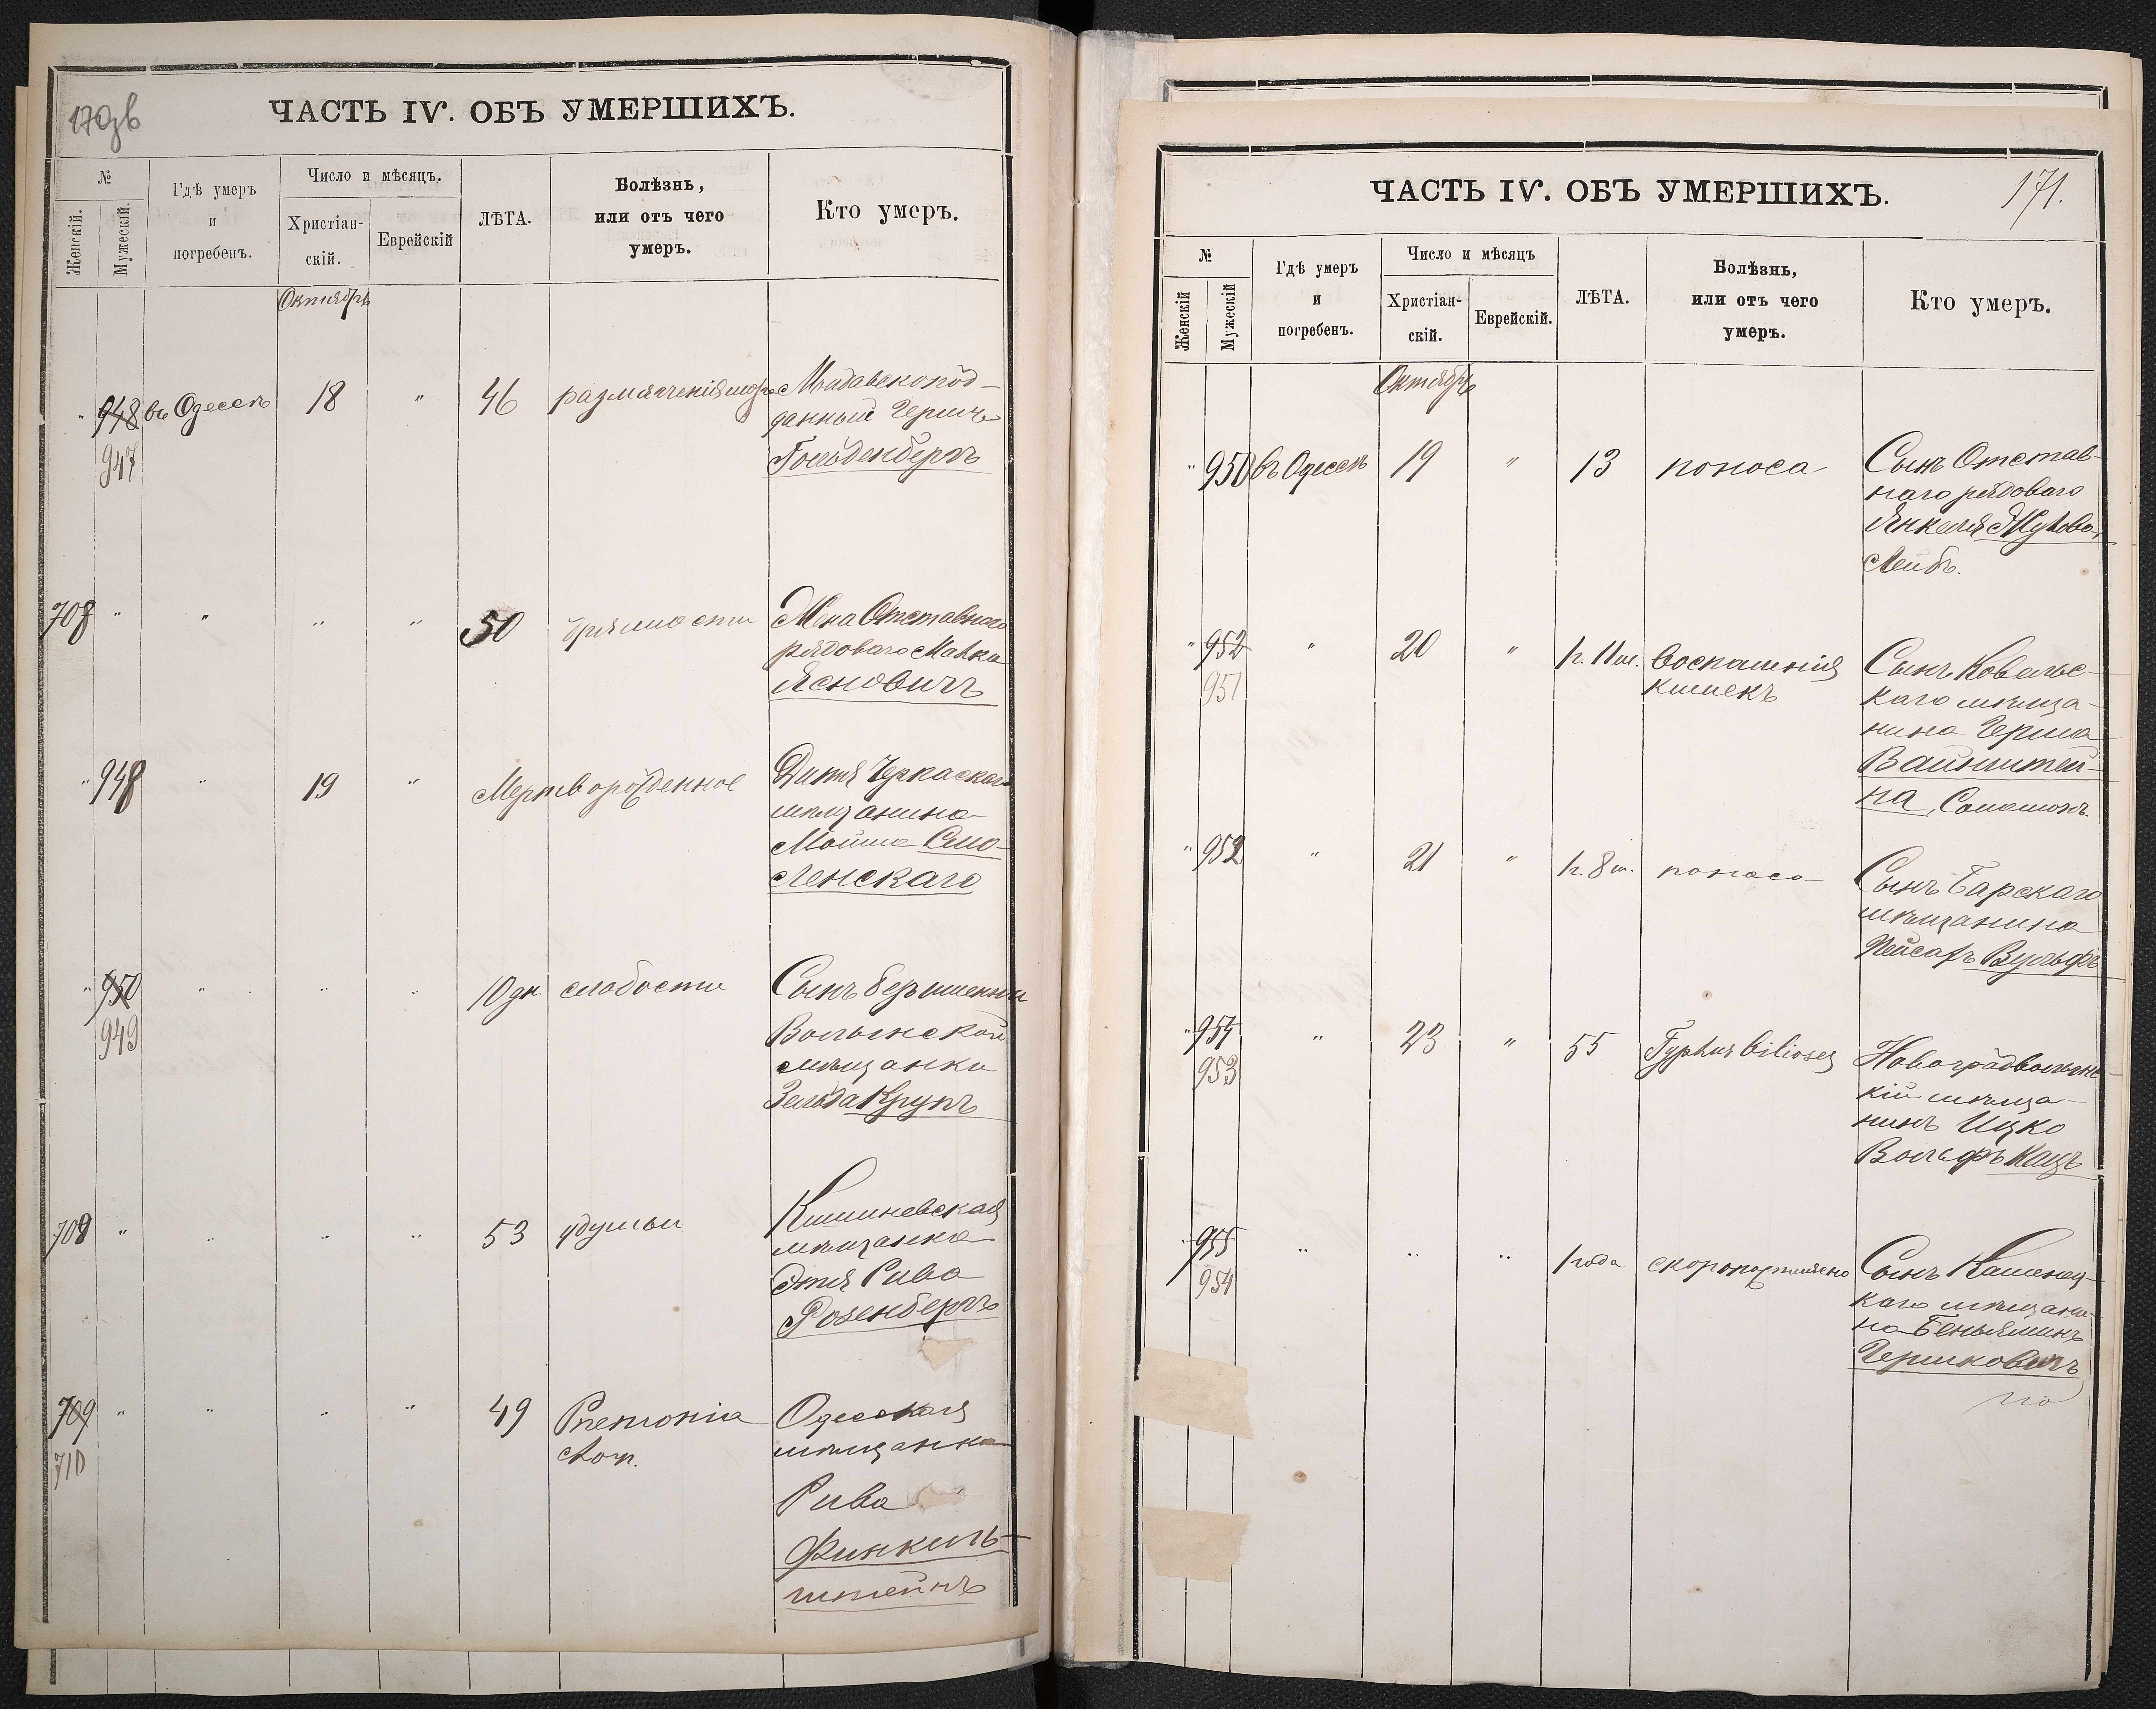 ЧАСТЬ IV. ОБЪ УМЕРШИХЪ.
№
Женскій.
Мужескій.
Гдѣ умеръ
и
погребенъ.
Число и мѣсяцъ.
Христіан-
скій.
Еврейскій
ЛѢТА.
Болѣзнь,
или отъ чего
умеръ.
Кто умеръ.
Октябрь
" 948 въ Одессѣ 18 " 46 размягченія
947
данный Гершъ
Гольденбергъ
708 " " " " 50
Жена Отставного
рядового Малка
Ясновичъ
" 948 " 19 " Мертворожденное
Дитя Черкаскаго
мѣщанина
Мошка Смо-
ленскаго
" 950 " " " 10 дн. слабости
949
Сынъ безъименный
Волынской
мѣщанки
Зельда Крупъ
709 " " " " 53 удушьи
Кишиневская
мѣщанка
Этя Рива
Розенбергъ
709 " " " " 49 Pnemonia
710
Одесская
мѣщанка
Рива
Финкиль-
штейнъ
ЧАСТЬ IV. ОБЪ УМЕРШИХЪ.
171.
№
Женскій
Мужескій
Гдѣ умеръ
и
погребенъ.
Число и мѣсяцъ
Христіан-
скій.
Еврейскій.
ЛѢТА.
Болѣзнь,
или отъ чего
умеръ.
Кто умеръ.
Октябрь
" 950 въ Одессѣ 19 " 13 поноса
Сынъ Отстав-
наго рядоваго
Янкеля
Лейбъ.
" 952 " 20 " 1 г. 11 м. воспаленія
951
кишекъ
Сынъ Ковельс-
каго мѣща-
нина Герша
Вайнштей-
на, Соломонъ.
" 952 " 21 " 1 г. 8 м. поноса
Сынъ Барскаго
мѣщанина
Пейсахъ Вульфъ
" 954 " 23 " 55 Typhus biliosus
953
Новоградволынс-
кій мѣща-
нинъ Ицко
Вольфъ Кацъ
" 955 " " " 1 года скоропостижно
954
Сынъ Каменец-
каго мѣщани-
на Беньяминъ
Гершковичъ